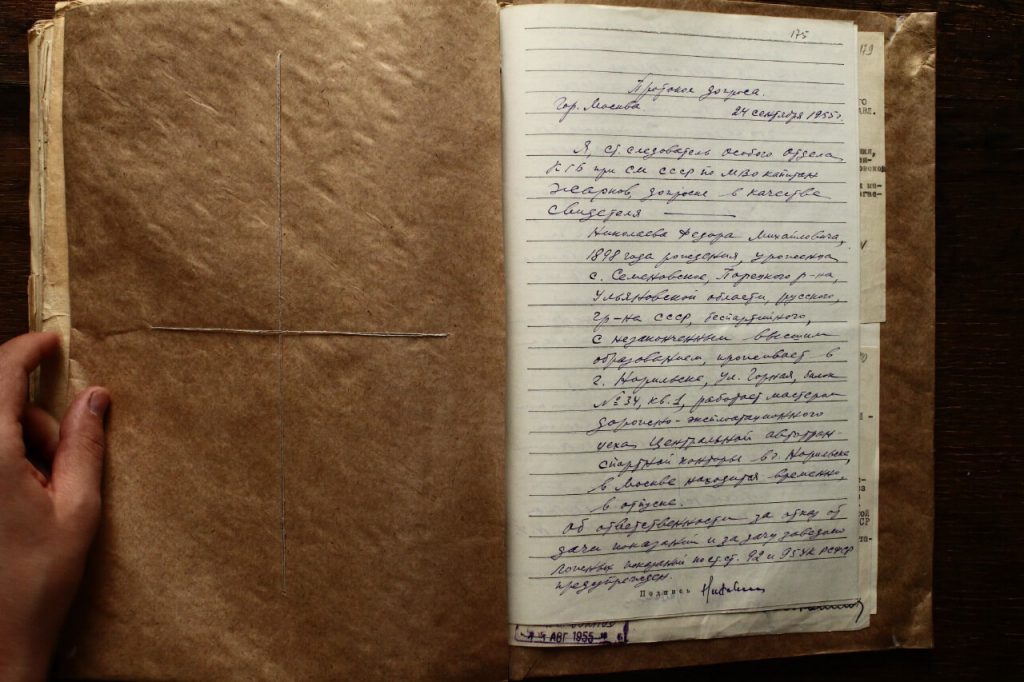 175
Протокол допроса.
Гор. Москва 24 сентября 1955 г.
Я, ст. следователь особого отдела
КГБ при СМ СССР по МВО капитан
Жарков, допросил в качестве
свидетеля —
Николаева Федора Михайловича,
1898 года рождения, уроженца
с. Семеновское, Порецкого р-на,
Ульяновской области, русского,
гр-на СССР, беспартийного,
с незаконченным высшим
образованием, проживает в
г. Норильске, ул. Горная, дом
№ 34, кв. 1, работает мастером
дорожно-эксплоатационного
цеха Центральной автотран-
спортной конторы в г. Норильске,
в Москве находится временно,
в отпуске.
Об ответственности за отказ от
дачи показаний и за дачу заведомо
ложных показаний по ст.ст. 92 и 95 УК РСФСР
предупрежден.
Подпись
АВГ 1955
179